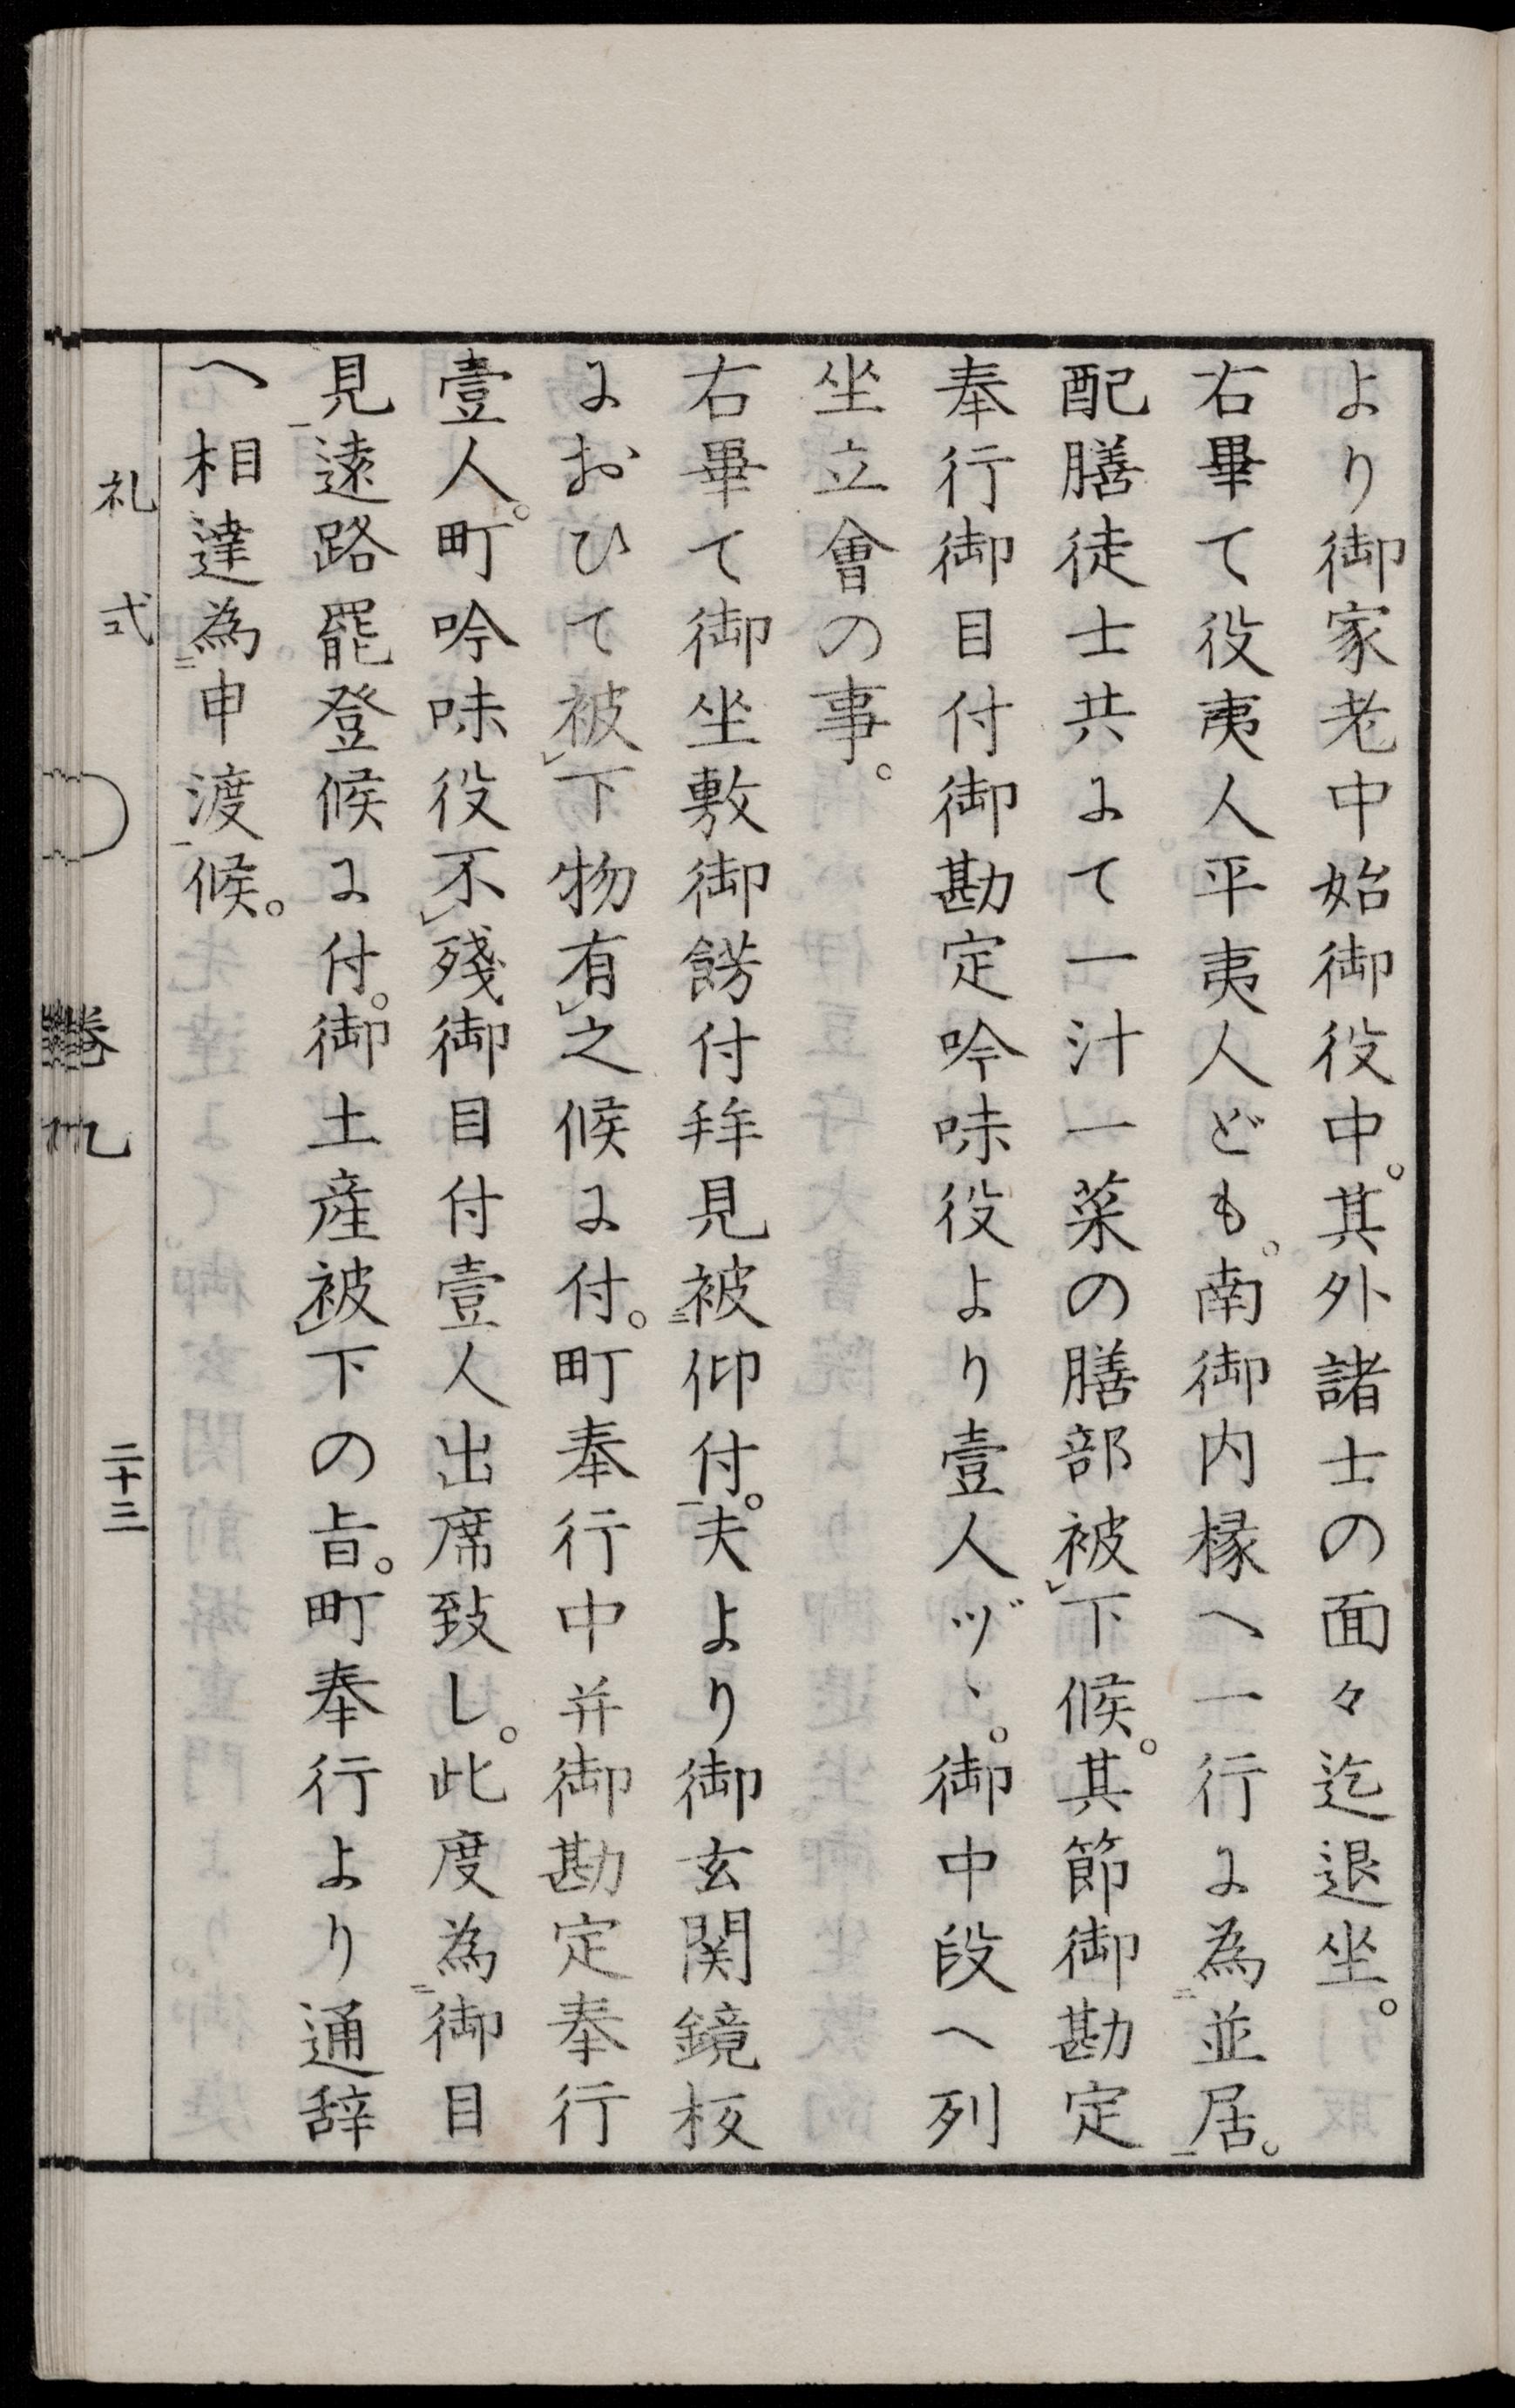 より御家老中始御役中。其外諸士の面々迄退坐。
右畢て役夷人平夷人ども。南御内縁へ一行に為㆓並居㆒。
配膳徒士共にて一汁一菜の膳部被㆑下候。其節御勘定
奉行御目付御勘定吟味役より壹人ヅヽ。御中段へ列
坐立會の事。
右畢て御坐敷御餝付拜見被㆓仰付㆒。夫より御玄関鏡板
におひて被㆑下物有㆑之候に付。町奉行中并御勘定奉行
壹人。町吟味役不㆑殘御目付壹人出席致し。此度為㆓御目
見㆒遠路罷登候に付。御土産被㆑下の旨。町奉行より通辞
へ相達為㆓申渡㆒候。
礼式 巻九 二十三